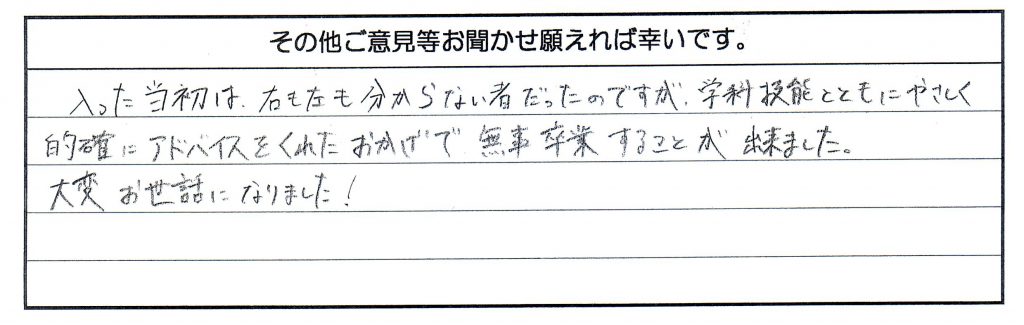 その他ご意見等お聞かせ願えれば幸いです。
入った当初は、右も左も分からない者だったのですが、学科技能とともにやさしく
的確にアドバイスをくれたおかげで無事卒業することが出来ました。
大変お世話になりました！